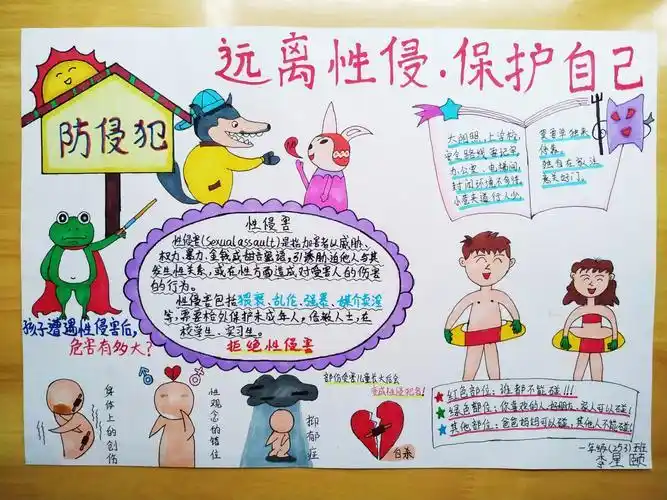 远离性侵·保护自己
防侵犯
大阴照,上学校,
安全路线要记牢
办公室、电梯间,
封闭环境不合作
小巷夹道行人少,
要害单独来
体乘
独自在家,注
意关好门。
性侵害
性侵害(Sexual assault)是指加害者以威胁、
权力、暴力、金钱或甜言蜜语,引诱胁迫他人与其
发生性关系,或在性方面造成对受害人的伤害
的行为。
性侵害包括猥亵、乱伦、强暴、媒介卖淫
等,需要特别保护未成年人,低敏人士,在
校学生、实习生。
拒绝性侵害
孩子遭遇性侵害后,
危害有多大?
身体上的创伤
性观念的错位
部份受害儿童长大后会
变成性侵犯者!
抑郁症
自杀
红色部位:谁都不能碰!!!
绿色部位:你喜欢的人,好朋友,家人可以碰!
其他部位:爸爸妈妈可以碰,其他人不能碰!
一年级(253)班
李星颐